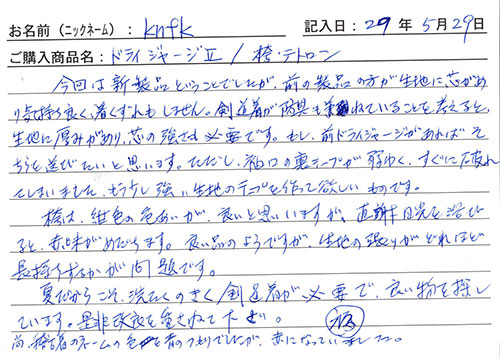 お名前（ニックネーム）： knfk 記入日：29年5月29日
ご購入商品名：ドライジャージⅡ / 袴・テトロン
今回は新製品ということでしたが、前の製品の方が生地に芯があ
り気持ち良く、着くずれもしません。剣道着が防具も兼ねていることを考えると、
生地に厚みがあり、芯の強さも必要です。もし、前ドライジャージがあればそ
ちらを選びたいと思います。ただし、袖口の裏テープが弱く、すぐに破れ
てしまいました。もう少し強い生地のテープを作って欲しいものです。
袴は、紺色の色あいが、良いと思いますが、直射日光を浴び
ると、赤味がめだちます。良い品のようですが、生地の張りがどれほど
長持ちするかが問題です。
夏だからこそ、洗たくのきく剣道着が必要で、良い物を探し
ています。是非改良を重ねて下さい。
尚、のネームの色を青のつもりでしたが、赤になっていました。